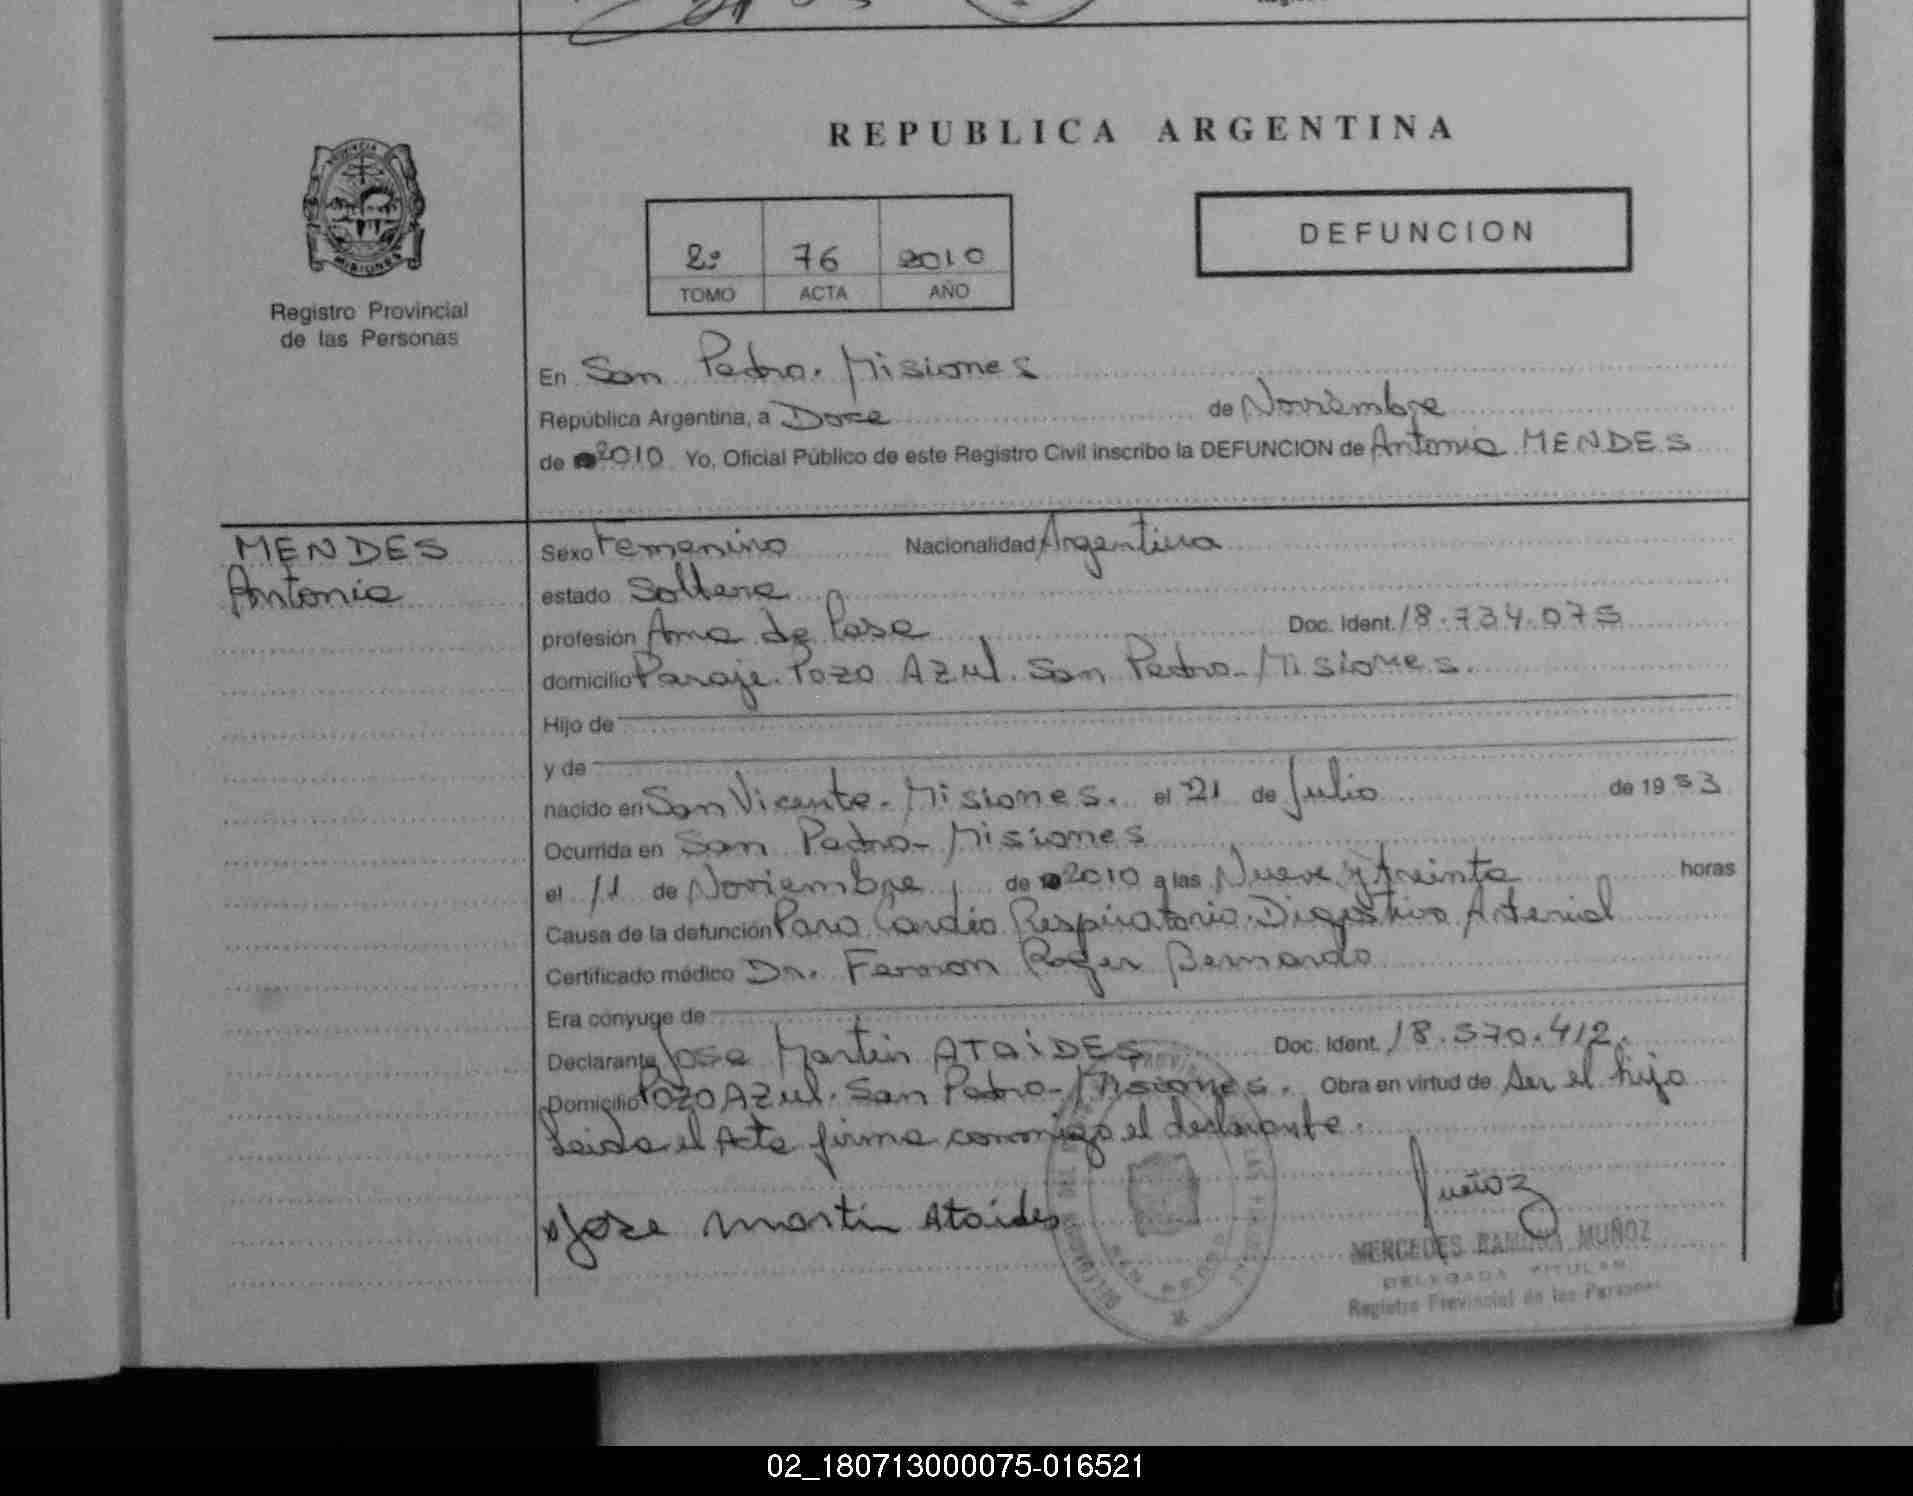 REPUBLICA ARGENTINA
PROVINCIA
MISIONES
Registro Provincial
de las Personas
2º 76 2010
TOMO ACTA AÑO
DEFUNCION
En San Pedro. Misiones
República Argentina, a Doce de Noviembre
de 2010 Yo, Oficial Público de este Registro Civil inscribo la DEFUNCION de Antonia MENDES
MENDES
Antonia
Sexo Femenino Nacionalidad Argentina
estado Soltera
profesión Ama de Casa Doc. Ident. 18.734.075
domicilio Paraje Pozo Azul. San Pedro - Misiones.
Hijo de
y de
nacido en San Vicente - Misiones. el 21 de Julio de 1953
Ocurrida en San Pedro - Misiones
el 11 de Noviembre de 2010 a las Nueve y treinta horas
Causa de la defunción Paro Cardio Respiratorio. Digestivo Arterial
Certificado médico Dr. Roger Bernardo
Era cónyuge de
Declarante Jose Martin ATAIDES Doc. Ident. 18.570.412.
Domicilio Pozo Azul. San Pedro - Misiones. Obra en virtud de Ser el hijo
Leida el Acta firma conmigo el declarante.
Jose martin Ataides
Muñoz
MERCEDES RAMONA MUÑOZ
DELEGADA TITULAR
Registro Provincial de las Personas
SAN PEDRO
02_180713000075-016521